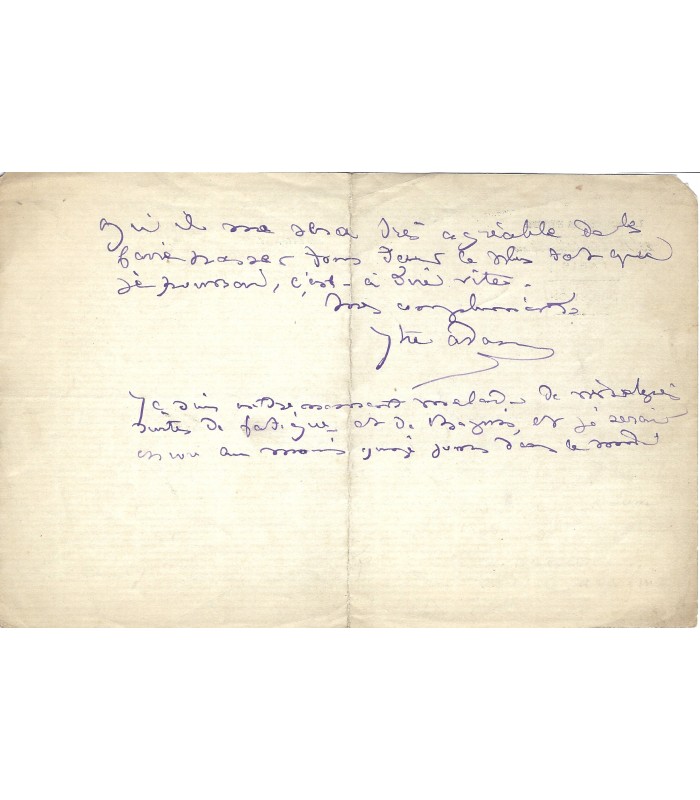 qu'il me sera très agréable de le
faire passer dans le plus tôt que
je pourrai, c'est-à-dire vite.
Mes compliments.
Jtte Adam
Je suis extrêmement malade de névralgies
suites de fatigue et de et je serai
encore au moins quinze jours dans le